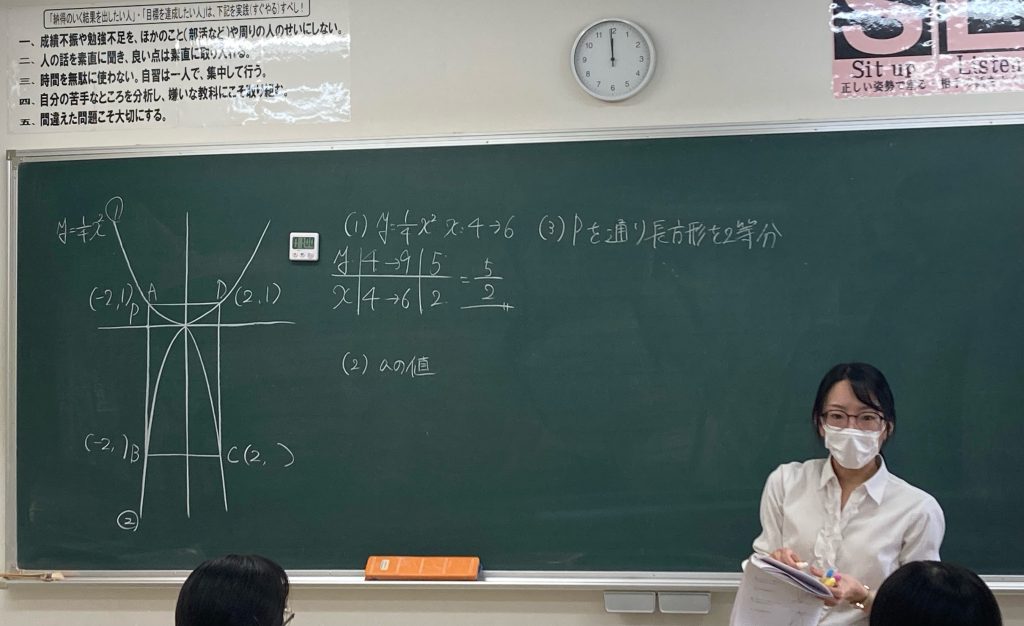 「納得のいく結果を出したい人」・「目標を達成したい人」は、下記を実践(すぐやる)すべし!
一、成績不振や勉強不足を、ほかのこと(部活など)や周りの人のせいにしない。
二、人の話を素直に聞き、良い点は素直に取り入れる。
三、時間を無駄に使わない。自習は一人で、集中して行う。
四、自分の苦手なところを分析し、嫌いな教科にこそ取り組む。
五、間違えた問題こそ大切にする。
12 1 2 3 4 5 6 7 8 9 10 11
S L
Sit up Listen
正しい姿勢で座る
y=1/4x² ①
(-2,1) A D (2,1)
P
(-2, ) B C(2, )
②
(1) y=1/4x² x:4→6
y 4→9 5
x 4→6 2
=5/2
(2) aの値
(3) Pを通り長方形を2等分